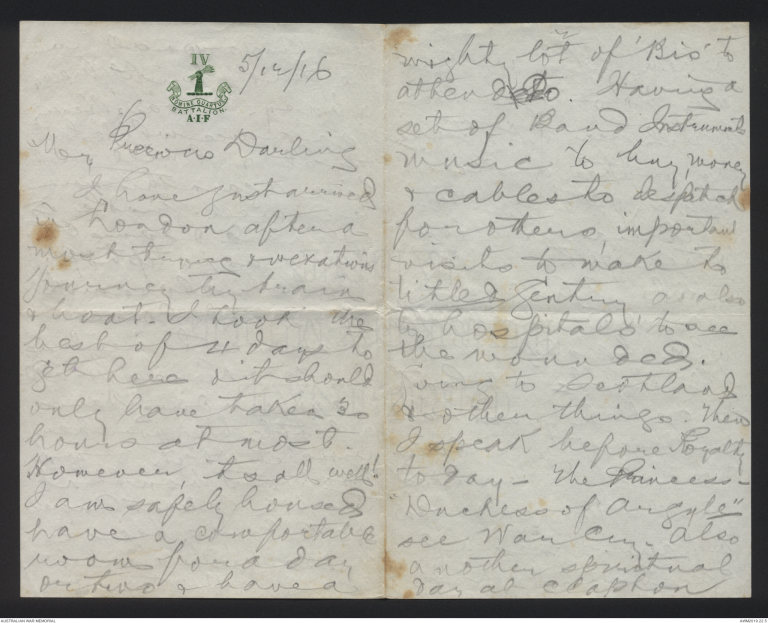 IV
COMING QUARTUS
BATTALION
A·I·F
5/12/16
My Precious Darling
I have just arrived
in London after a
most tiring & vexatious
journey by train
& boat. I took the
best of 4 days to
get here & it should
only have taken 30
hours at most.
However, its all well!
I am safely housed
have a comfortable
room for a day
or two & have a
mighty lot of 'Bis' to
attend to. Having a
set of Band Instruments
music to buy, money
& cables to despatch
for others, important
visits to make to
titled Gentry as also
to hospitals to see
the wounded.
Going to Scotland
& other things. Then
I speak before Royalty
to day - The Princess -
"Duchess of Argyle"
see War Cry. Also
another spiritual
day at Clapton
AUSTRALIAN WAR MEMORIAL